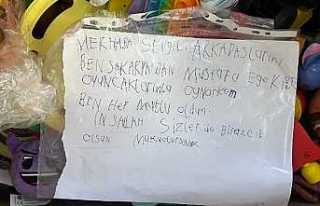 MERHABA SEVGİLİ ARKADAŞLARIM
BEN SAKARYA'DAN MUSTAFA Ege
OYUNCAKLARIMLA oynarken
BEN Her MUTLU oldum
İNŞALLAH Sizler de Birazcık
olsun Mutlu olursunuz